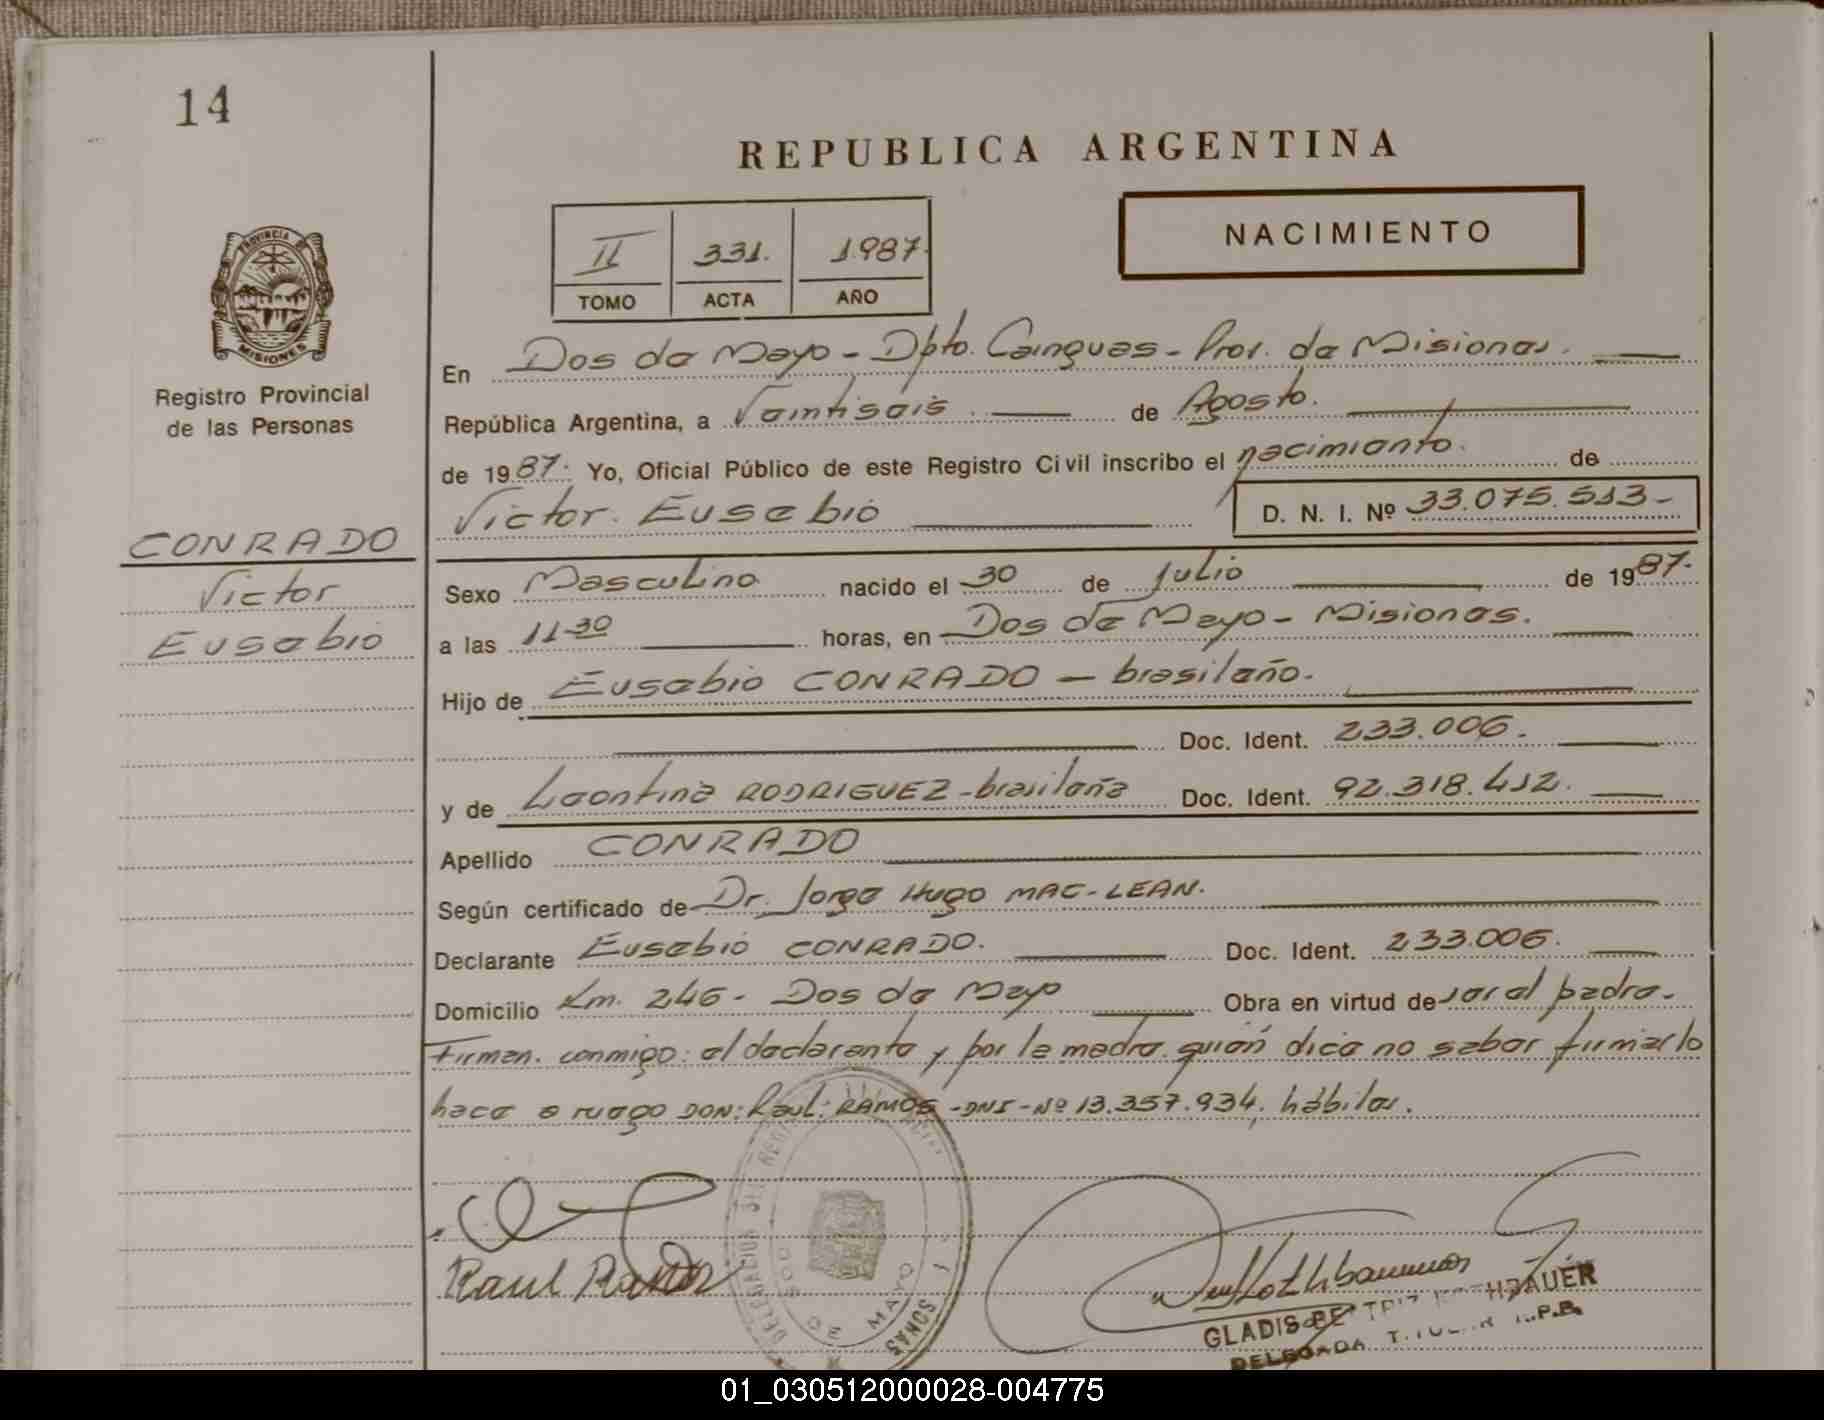 14
REPUBLICA ARGENTINA
NACIMIENTO
II 331. 1.987.
TOMO ACTA AÑO
PROVINCIA DE
MISIONES
Registro Provincial
de las Personas
CONRADO
Victor
Eusebio
En Dos de Mayo - Dpto. Cainguas - Prov. de Misiones.
República Argentina, a Veintiseis de Agosto.
de 1987. Yo, Oficial Público de este Registro Civil inscribo el nacimiento. de
Victor. Eusebio D. N. I. Nº 33.075.513-
Sexo Masculino nacido el 30 de Julio de 1987.
a las 11-30 horas, en Dos de Mayo - Misiones.
Hijo de Eusebio CONRADO - brasileño.
Doc. Ident. 233.006.
y de Leontina RODRIGUEZ - brasileña Doc. Ident. 92.318.412.
Apellido CONRADO
Según certificado de Dr. Jorge Hugo MAC-LEAN.
Declarante Eusebio CONRADO. Doc. Ident. 233.006.
Domicilio Km. 246 - Dos de Mayo Obra en virtud de ser el padre.
Firman. conmigo: el declarante y por la madre quién dice no saber firmar lo
hace a ruego DON: Raul: RAMOS - DNI - Nº 13.357.934, hábiles.
Raul Ramos
DOS DE MAYO
GLADIS BEATRIZ
DELEGADA TITULAR R.P.P.
01_030512000028-004775